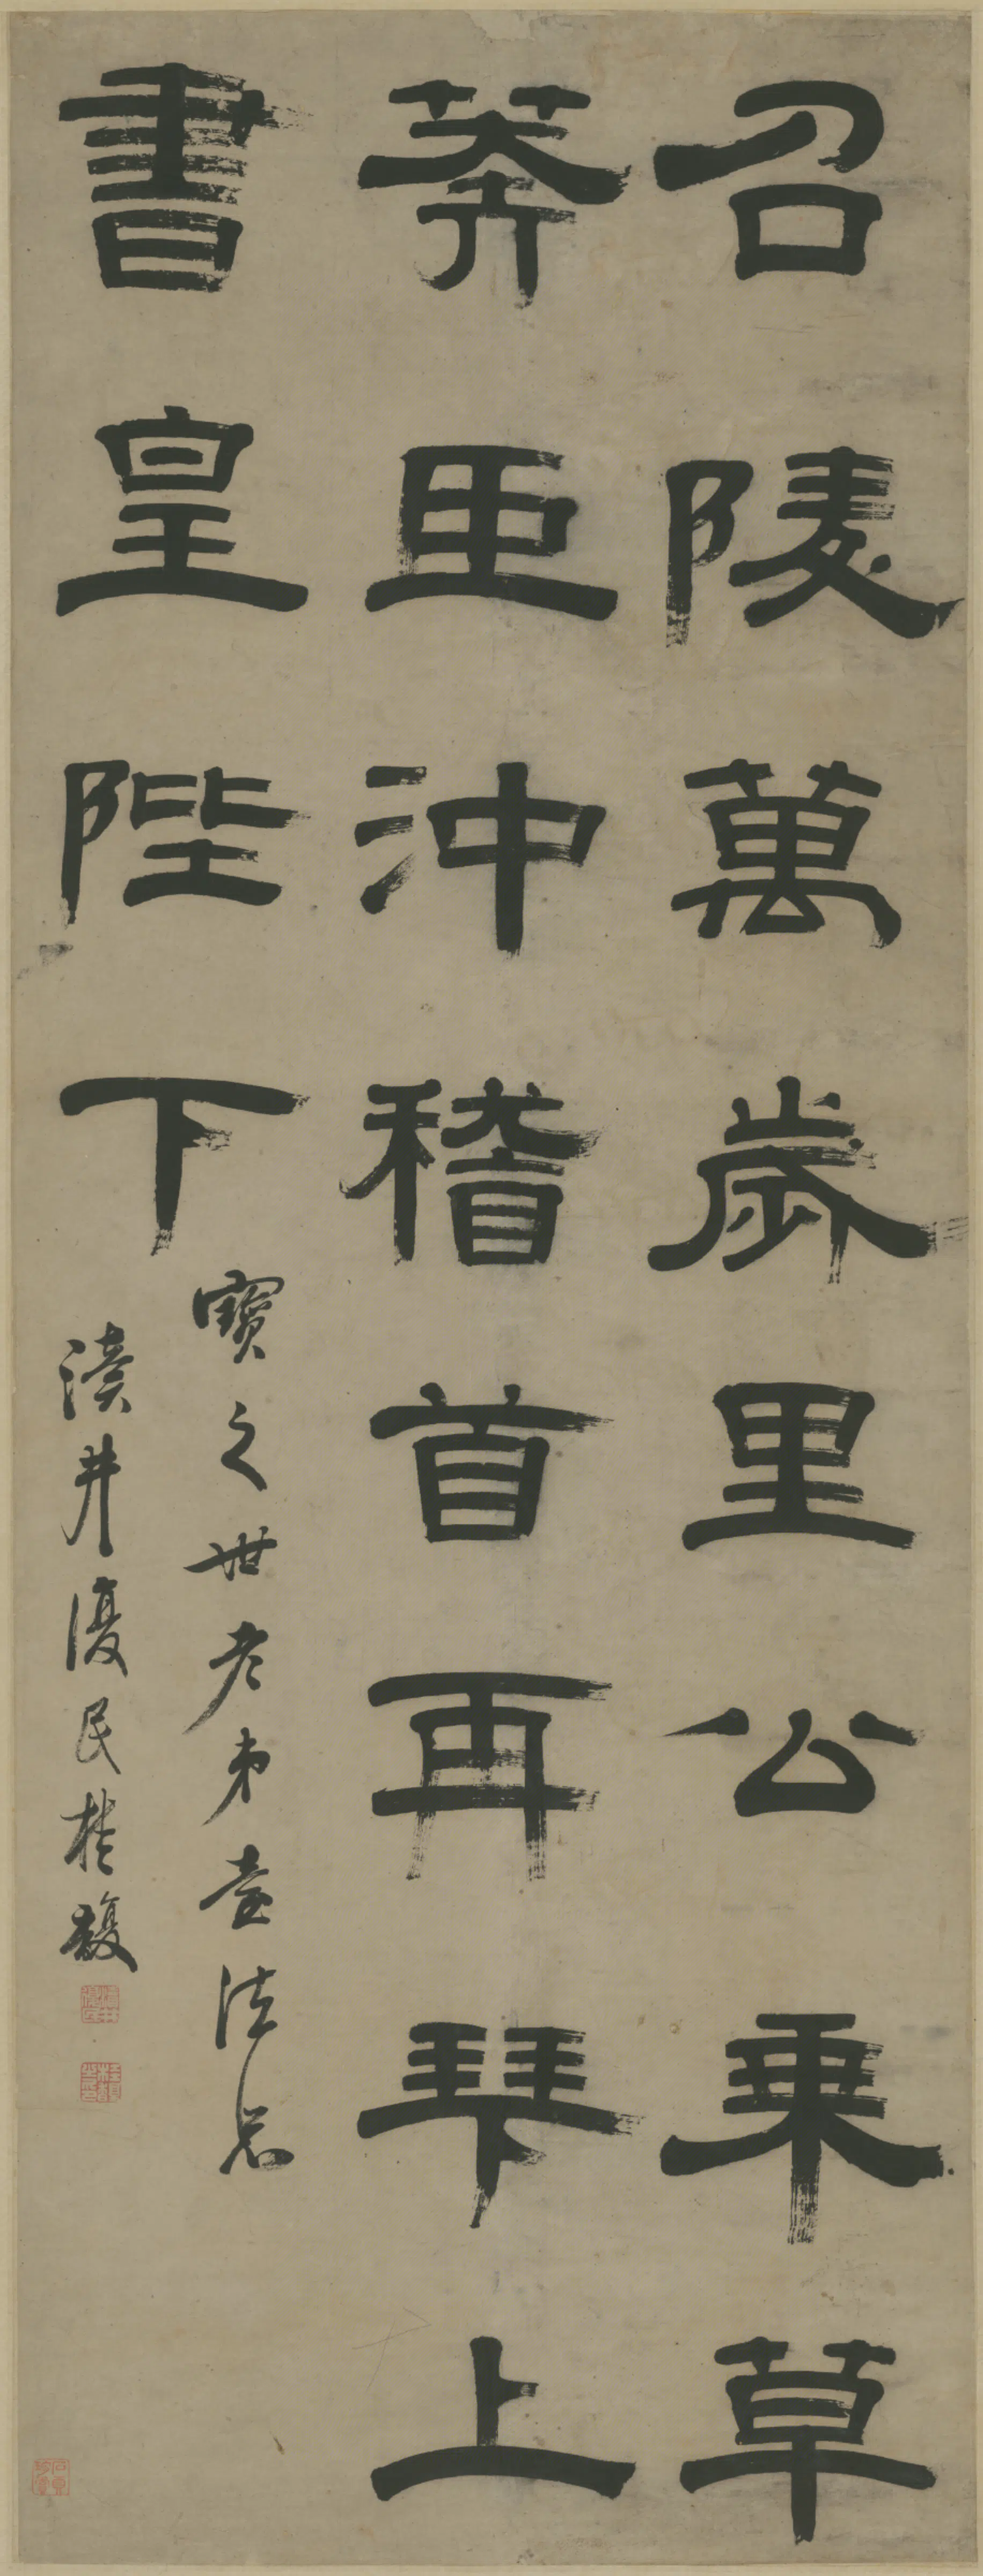 召陵萬歲里公乘草
莽臣沖稽首再拜上
書皇陛下
寶之世老弟臺法正
瀆井復民桂馥